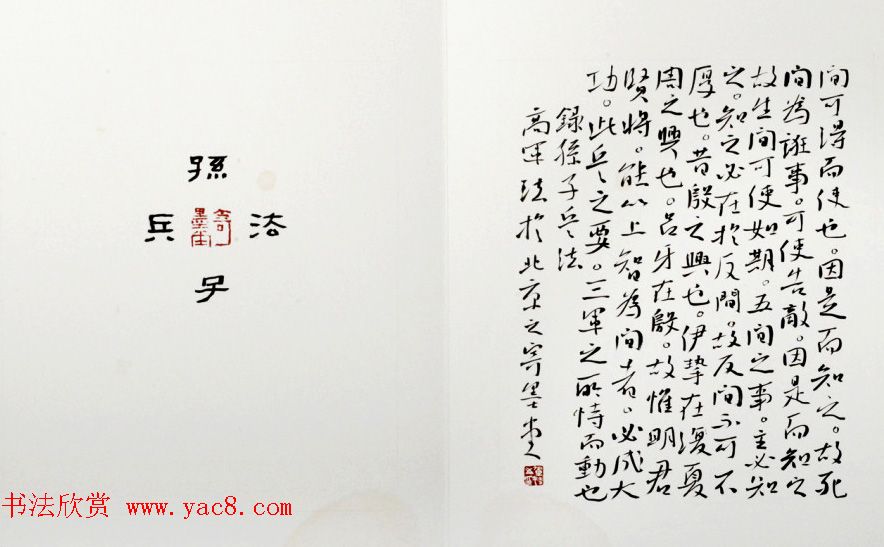 間可得而使也。因是而知之。故死
間為誑事。可使告敵。因是而知之
故生間可使如期。五間之事。主必知
之。知之必在於反間。故反間不可不
厚也。昔殷之興也。伊摯在夏
周之興也。呂牙在殷。故惟明君
賢將。能以上智為間者。必成大
功。此兵之要。三軍之所恃而動也
錄孫子兵法
高軍法於北京之寄墨堂
孫子
兵法
书法欣赏 www.yac8.com